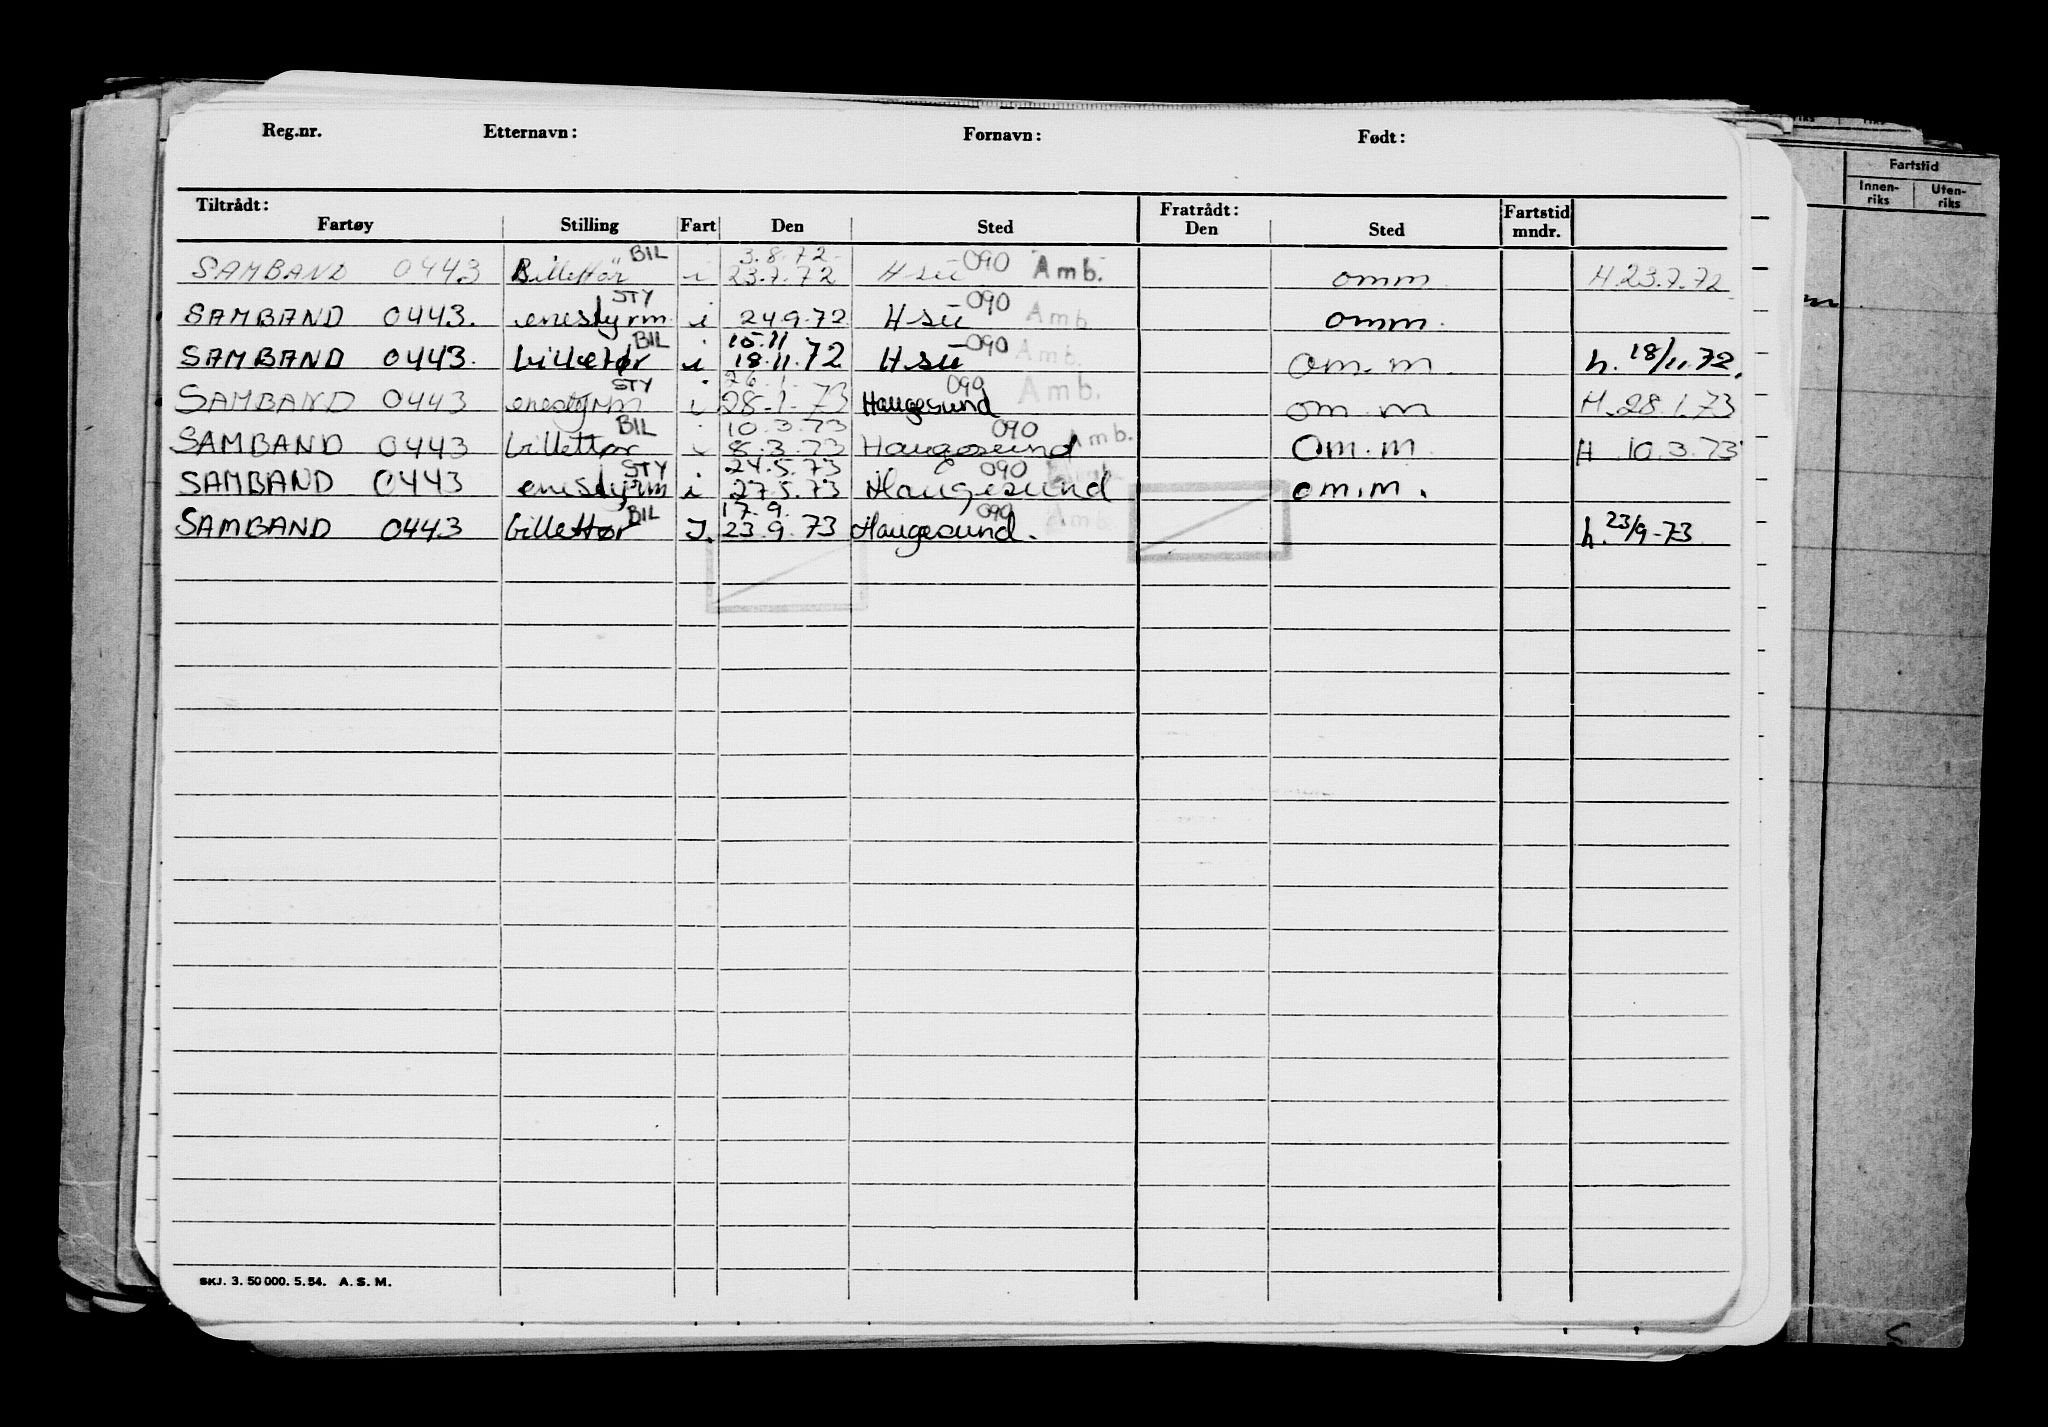 Reg.nr. Etternavn: Fornavn: Født:
Tiltrådt: Fratrådt:
Fartøy Stilling Fart Den Sted Den Sted Fartstid mndr.
BIL 3.8.72
SAMBAND 0443 Billettør i 23.7.72 Hsu 090 Amb. omm H.23.7.72
STY
SAMBAND 0443. enestyrm i 24.9.72 Hsu 090 Amb. omm.
BIL i 15.11
SAMBAND 0443. billettør i 18.11.72 Hsu 090 Amb. om.m. h. 18/11.72.
STY 26.1.
SAMBAND 0443 enestyrm i 28-1-73 Haugesund 090 Amb. om.m H.28.1.73
BIL i 10.3.73
SAMBAND 0443 billettør i 8.3.73 Haugesund 090 Amb. om.m. H 10.3.73
STY 24.5.73
SAMBAND 0443 enestyrm i 27.5.73 Haugesund 090 om.m.
BIL 17.9.
SAMBAND 0443 billettør I. 23.9.73 Haugesund. 090 Amb. h. 23/9-73
SKJ. 3. 50 000. 5. 54. A. S. M.
Fartstid
Innen-riks Uten-riks